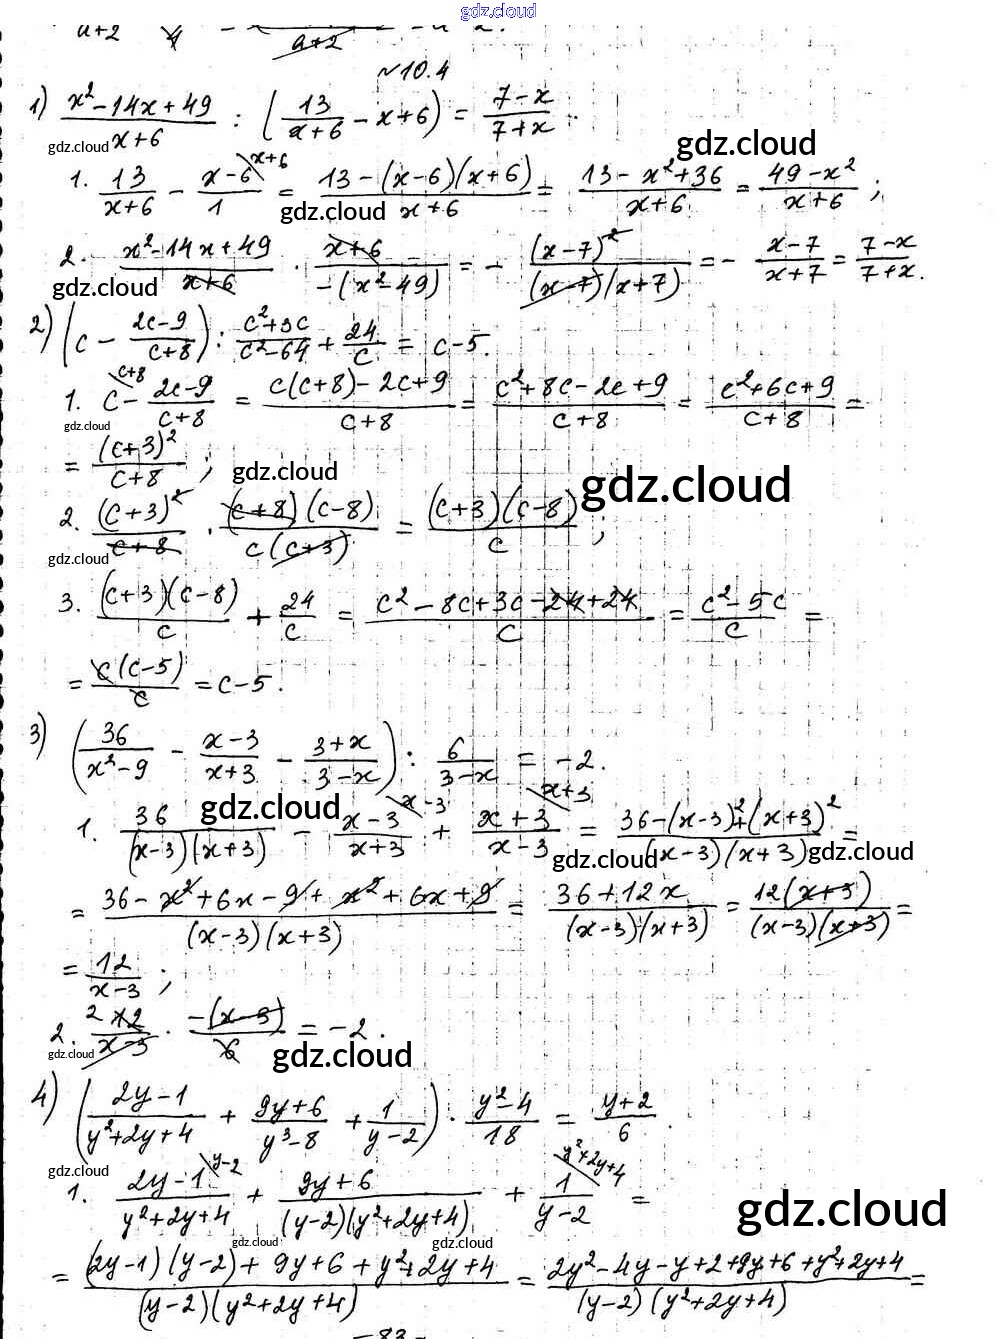 gdz.cloud
a+2 4 a+2 - a-2.
№10.4
1) (x²-14x+49)/(x+6) : (13/(x+6) - x+6) = (7-x)/(7+x).
gdz.cloud
gdz.cloud
1. 13/(x+6) - (x-6)/1 \x+6 = (13-(x-6)(x+6))/(x+6) = (13-x²+36)/(x+6) = (49-x²)/(x+6);
gdz.cloud
2. (x²-14x+49)/(x+6) · (x+6)/(-(x²-49)) = - (x-7)²/((x-7)(x+7)) = - (x-7)/(x+7) = (7-x)/(7+x).
gdz.cloud
2) (c - (2c-9)/(c+8)) : (c²+3c)/(c²-64) + 24/c = c-5.
1. c \c+8 - (2c-9)/(c+8) = (c(c+8)-2c+9)/(c+8) = (c²+8c-2c+9)/(c+8) = (c²+6c+9)/(c+8) =
gdz.cloud
= (c+3)²/(c+8);
gdz.cloud
gdz.cloud
2. (c+3)²/(c+8) · ((c+8)(c-8))/(c(c+3)) = ((c+3)(c-8))/c;
gdz.cloud
3. ((c+3)(c-8))/c + 24/c = (c²-8c+3c-24+24)/c = (c²-5c)/c =
= (c(c-5))/c = c-5.
3) (36/(x²-9) - (x-3)/(x+3) - (3+x)/(3-x)) : 6/(3-x) = -2.
gdz.cloud
1. 36/((x-3)(x+3)) - (x-3)/(x+3) \x-3 + (x+3)/(x-3) \x+3 = (36-(x-3)²+(x+3)²)/((x-3)(x+3)) =
gdz.cloud
gdz.cloud
= (36-x²+6x-9+x²+6x+9)/((x-3)(x+3)) = (36+12x)/((x-3)(x+3)) = (12(x+3))/((x-3)(x+3)) =
= 12/(x-3);
2. 2 12/(x-3) · (-(x-3))/6 = -2.
gdz.cloud
gdz.cloud
4) ((2y-1)/(y²+2y+4) + (9y+6)/(y³-8) + 1/(y-2)) · (y²-4)/18 = (y+2)/6.
gdz.cloud
1. (2y-1)/(y²+2y+4) \y-2 + (9y+6)/((y-2)(y²+2y+4)) + 1/(y-2) \y²+2y+4 =
gdz.cloud
gdz.cloud
gdz.cloud
= ((2y-1)(y-2)+9y+6+y²+2y+4)/((y-2)(y²+2y+4)) = (2y²-4y-y+2+9y+6+y²+2y+4)/((y-2)(y²+2y+4)) =
-83-